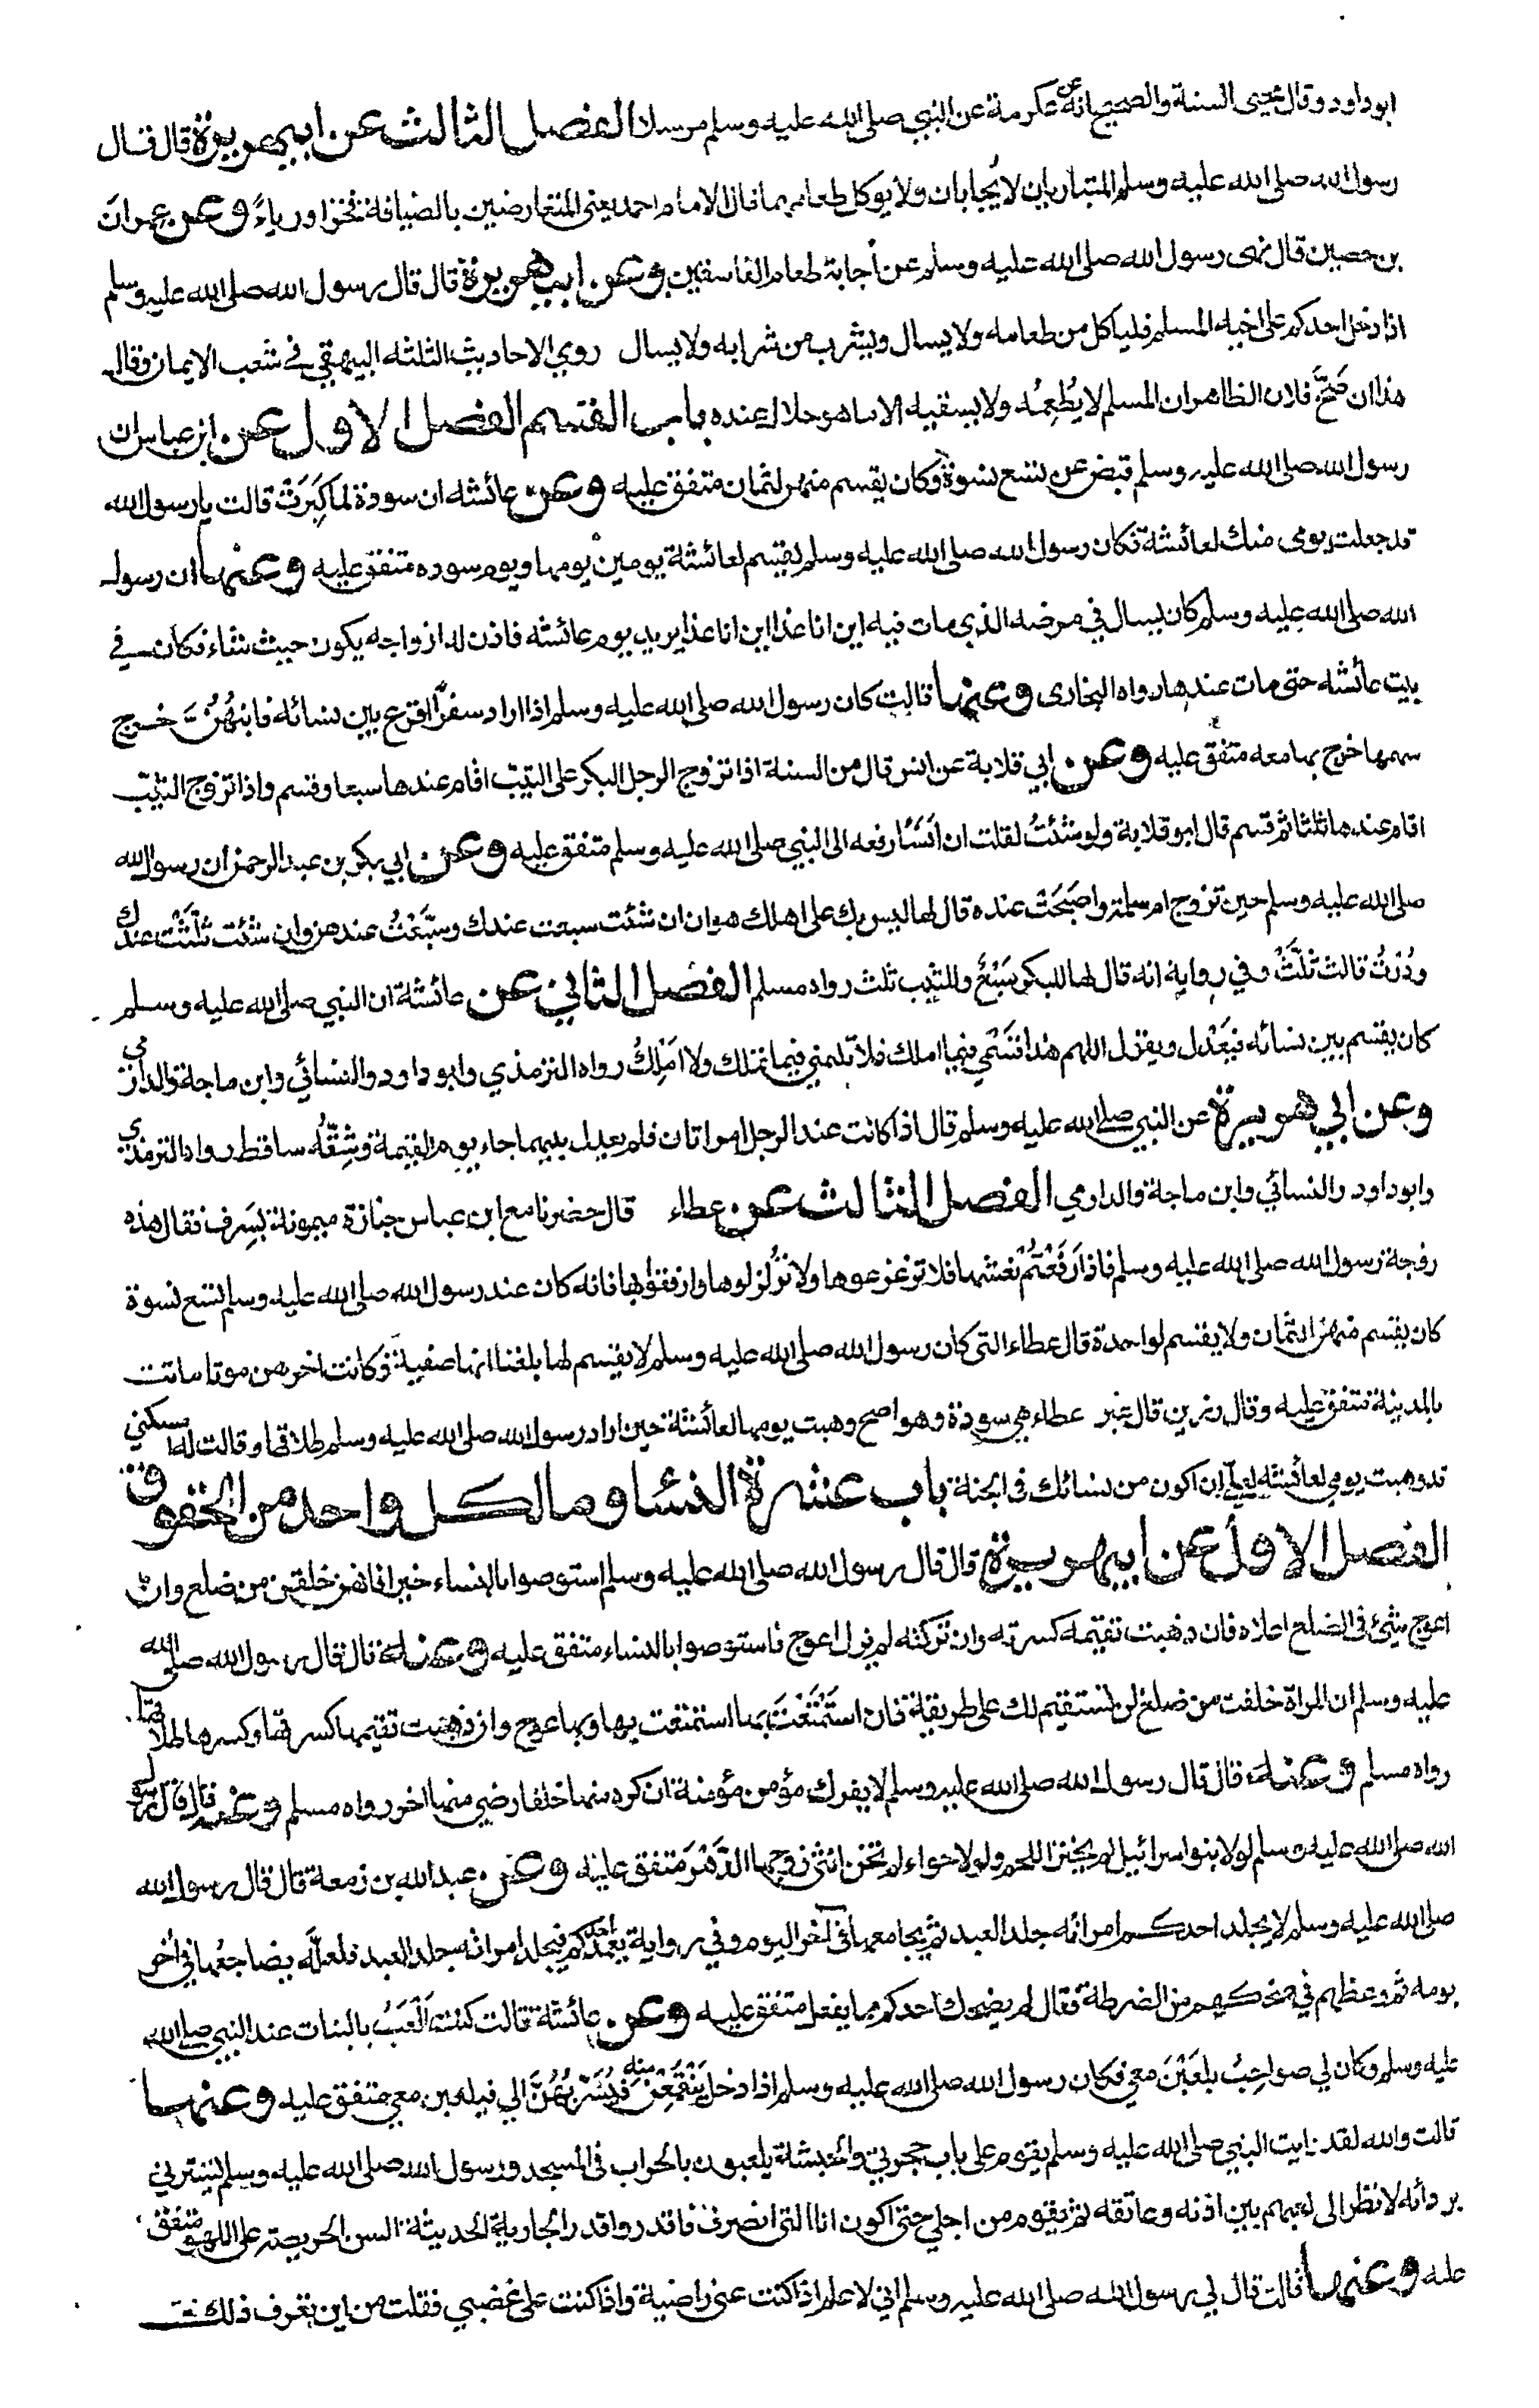 ابوداود وقال محيى السنة والصحيح انه عن عكرمة عن النبي صلى الله عليه وسلم مرسلا الفصل الثالث عن ابي هريرة قال قال
رسول الله صلى الله عليه وسلم المتباريان لا يُجابان ولا يوكل طعامهما قال الامام احمد يعني المتعارضين بالضيافة فخرا ورياءً وعن عمران
بن حصين قال نهى رسول الله صلى الله عليه وسلم عن اجابة طعام الفاسقين وعن ابي هريرة قال قال رسول الله صلى الله عليه وسلم
اذا دخل احدكم على اخيه المسلم فلياكل من طعامه ولا يسال ويشرب من شرابه ولا يسال روي الاحاديث الثلثه البيهقي في شعب الايمان وقال
هذا ان صَحَّ فلان الظاهر ان المسلم لا يُطعِمُه ولا يسقيه الا ما هو حلال عنده باب القسم الفصل الاول عن ابن عباس ان
رسول الله صلى الله عليه وسلم قبض عن تسع نسوة وكان يقسم منهن لثمان متفق عليه وعن عائشه ان سودة لما كَبِرَتْ قالت يا رسول الله
قد جعلت يومي منك لعائشة فكان رسول الله صلى الله عليه وسلم يقسم لعائشة يومين يومها ويوم سوده متفق عليه وعنها ان رسول
الله صلى الله عليه وسلم كان يسال في مرضه الذي مات فيه اين انا غدا اين انا غدا يريد يوم عائشه فاذن له ازواجه يكون حيث شاء فكان في
بيت عائشه حتى مات عندها رواه البخارى وعنها قالت كان رسول الله صلى الله عليه وسلم اذا اراد سفرًا اقرع بين نسائه فايتهُنَّ خرج
سهمها خرج بها معه متفق عليه وعن ابي قلابة عن انس قال من السنة اذا تزوج الرجل البكر على الثيب اقام عندها سبعا وقسم واذا تزوج الثيب
اقام عندها ثلثا ثم قسم قال ابو قلابة ولو شئتُ لقلت ان اَنَسًا رفعه الى النبي صلى الله عليه وسلم متفق عليه وعن ابي بكر بن عبد الرحمن ان رسول الله
صلى الله عليه وسلم حين تزوج ام سلمة واصبَحَتْ عنده قال لها ليس بك على اهلك هوان ان شئت سبعت عندك وسَبَّعْتُ عندهن وان شئت ثَلَّثْتُ عندك
ودُرْتُ قالت ثَلِّثْ وفي رواية انه قال لها للبكر سَبْعٌ وللثيب ثلث رواه مسلم الفصل الثاني عن عائشة ان النبي صلى الله عليه وسلم
كان يقسم بين نسائه فيَعْدِل ويقول اللهم هذا قَسْمِي فيما املك فلا تلمني فيما تملك ولا اَمْلِكُ رواه الترمذي وابو داود والنسائي وابن ماجة والدارمي
وعن ابي هريرة عن النبي صلى الله عليه وسلم قال اذا كانت عند الرجل امراتان فلم يعدل بينهما جاء يوم القيمة وشِقُّه ساقط رواه الترمذي
وابوداود والنسائي وابن ماجة والدارمي الفصل الثالث عن عطاء قال حضرنا مع ابن عباس جنازة ميمونة بسَرِف فقال هذه
زوجة رسول الله صلى الله عليه وسلم فاذا رَفَعْتُمْ نعشها فلا تزعزعوها ولا تُزلزلوها وارفقوا بها فانه كان عند رسول الله صلى الله عليه وسلم تسع نسوة
كان يقسم منهن لثمان ولا يقسم لواحدة قال عطاء التي كان رسول الله صلى الله عليه وسلم لا يقسم لها بلغنا انها صفية وكانت اخرهن موتا ماتت
بالمدينة متفق عليه وقال رزين قال غير عطاء هي سودة وهو اصح وهبت يومها لعائشة حين اراد رسول الله صلى الله عليه وسلم طلاقها وقالت له امسكني
قد وهبت يومي لعائشة لعلي ان اكون من نسائك في الجنة باب عشرة النساء وما لكل واحد من الحقوق
الفصل الاول عن ابي هريرة قال قال رسول الله صلى الله عليه وسلم استوصوا بالنساء خيرا فانهن خلقن من ضلع وان
اعوج شئ في الضلع اعلاه فان ذهبت تقيمه كسرته وان تركته لم يزل اعوج فاستوصوا بالنساء متفق عليه وعنه قال قال رسول الله صلى الله
عليه وسلم ان المراة خلقت من ضلع لن تستقيم لك على طريقة فان استَمْتَعْتَ بها استمتعت بها وبها عوج وان ذهبت تقيمها كسرتها وكسرها طلاقها
رواه مسلم وعنه قال قال رسول الله صلى الله عليه وسلم لا يفرك مؤمن مؤمنة ان كره منها خلقا رضي منها اخر رواه مسلم وعنه قال قال رسول
الله صلى الله عليه وسلم لولا بنو اسرائيل لم يخنز اللحم ولولا حواء لم تخن انثى زوجها الدَّهْرَ متفق عليه وعن عبدالله بن زمعة قال قال رسول الله
صلى الله عليه وسلم لا يجلد احدكم امراته جلد العبد ثم يجامعها في اخر اليوم وفي رواية يعمد احدكم فيجلد امراته جلد العبد فلعلَّه يضاجعُها في اخر
يومه ثم وعظهم في ضحكهم من الضرطة فقال لم يضحك احدكم مما يفعل متفق عليه وعن عائشة قالت كنت اَلْعَبُ بالبنات عند النبي صلى الله
عليه وسلم وكان لي صواحِبُ يلعَبْنَ معي فكان رسول الله صلى الله عليه وسلم اذا دخل يَنْقَمِعْنَ منه فيُسَرِّبُهُنَّ الي فيلعبن معي متفق عليه وعنها
قالت والله لقد رايت النبي صلى الله عليه وسلم يقوم على باب حجرتي والحبشة يلعبون بالحراب في المسجد ورسول الله صلى الله عليه وسلم يسترني
بردائه لانظر الى لعبهم بين اذنه وعاتقه ثم يقوم من اجلي حتى اكون انا التي انصرف فاقدروا قدر الجارية الحديثة السن الحريصة على اللهو متفق
عليه وعنها قالت قال لي رسول الله صلى الله عليه وسلم اني لاعلم اذا كنت عني راضية واذا كنت علي غضبي فقلت من اين تعرف ذلك